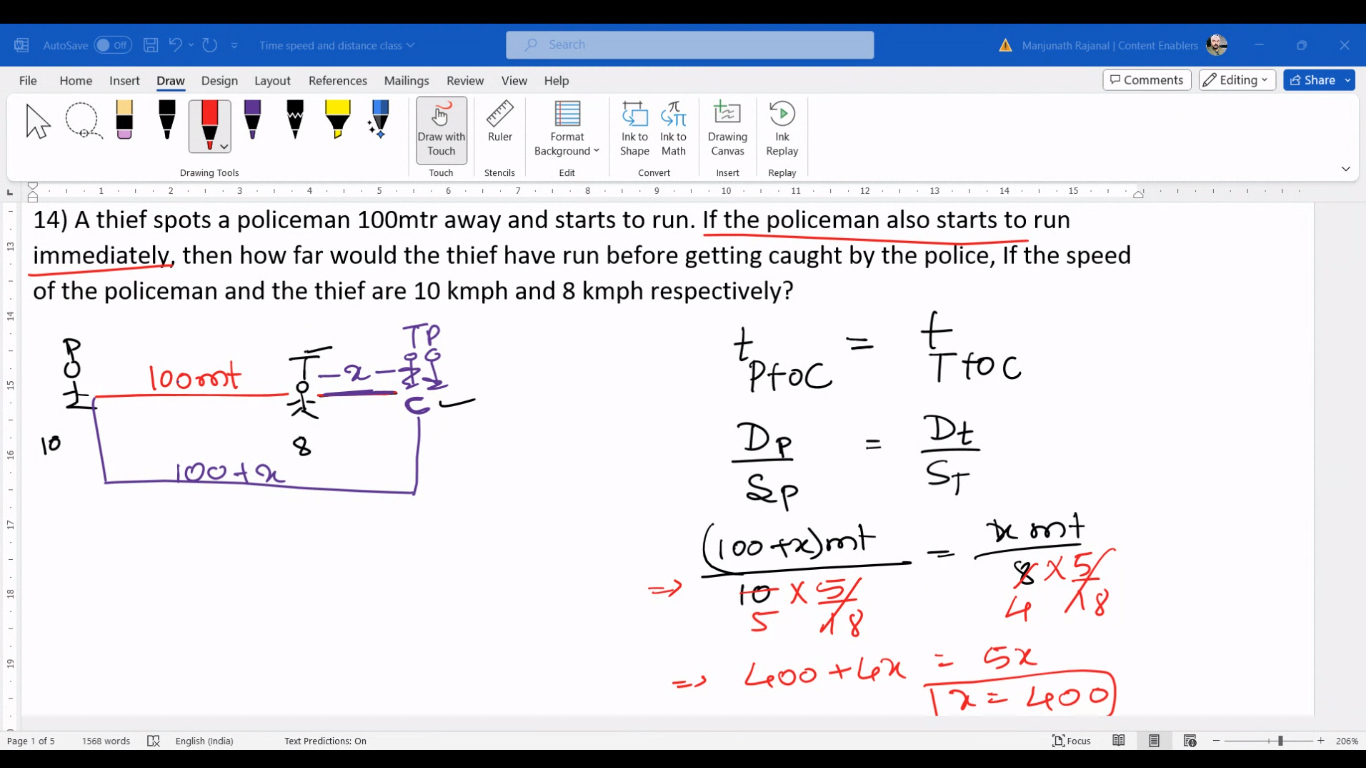 AutoSave Off Time speed and distance class Search Manjunath Rajanal | Content Enablers
File Home Insert Draw Design Layout References Mailings Review View Help Comments Editing Share
Draw with Touch Ruler Format Background Ink to Shape Ink to Math Drawing Canvas Ink Replay
Drawing Tools Touch Stencils Edit Convert Insert Replay
1 2 3 4 5 6 7 8 9 10 11 12 13 14 15
14) A thief spots a policeman 100mtr away and starts to run. If the policeman also starts to run
immediately, then how far would the thief have run before getting caught by the police, If the speed
of the policeman and the thief are 10 kmph and 8 kmph respectively?
P T T P
100mt x
C
10 8
100+x
t PtoC = t TtoC
Dp/Sp = Dt/ST
(100+x)mt / 10 × 5/18 = x mt / 8 × 5/18
5 4
=> 400+4x = 5x
x = 400
Page 1 of 5 1568 words English (India) Text Predictions: On Focus 206%